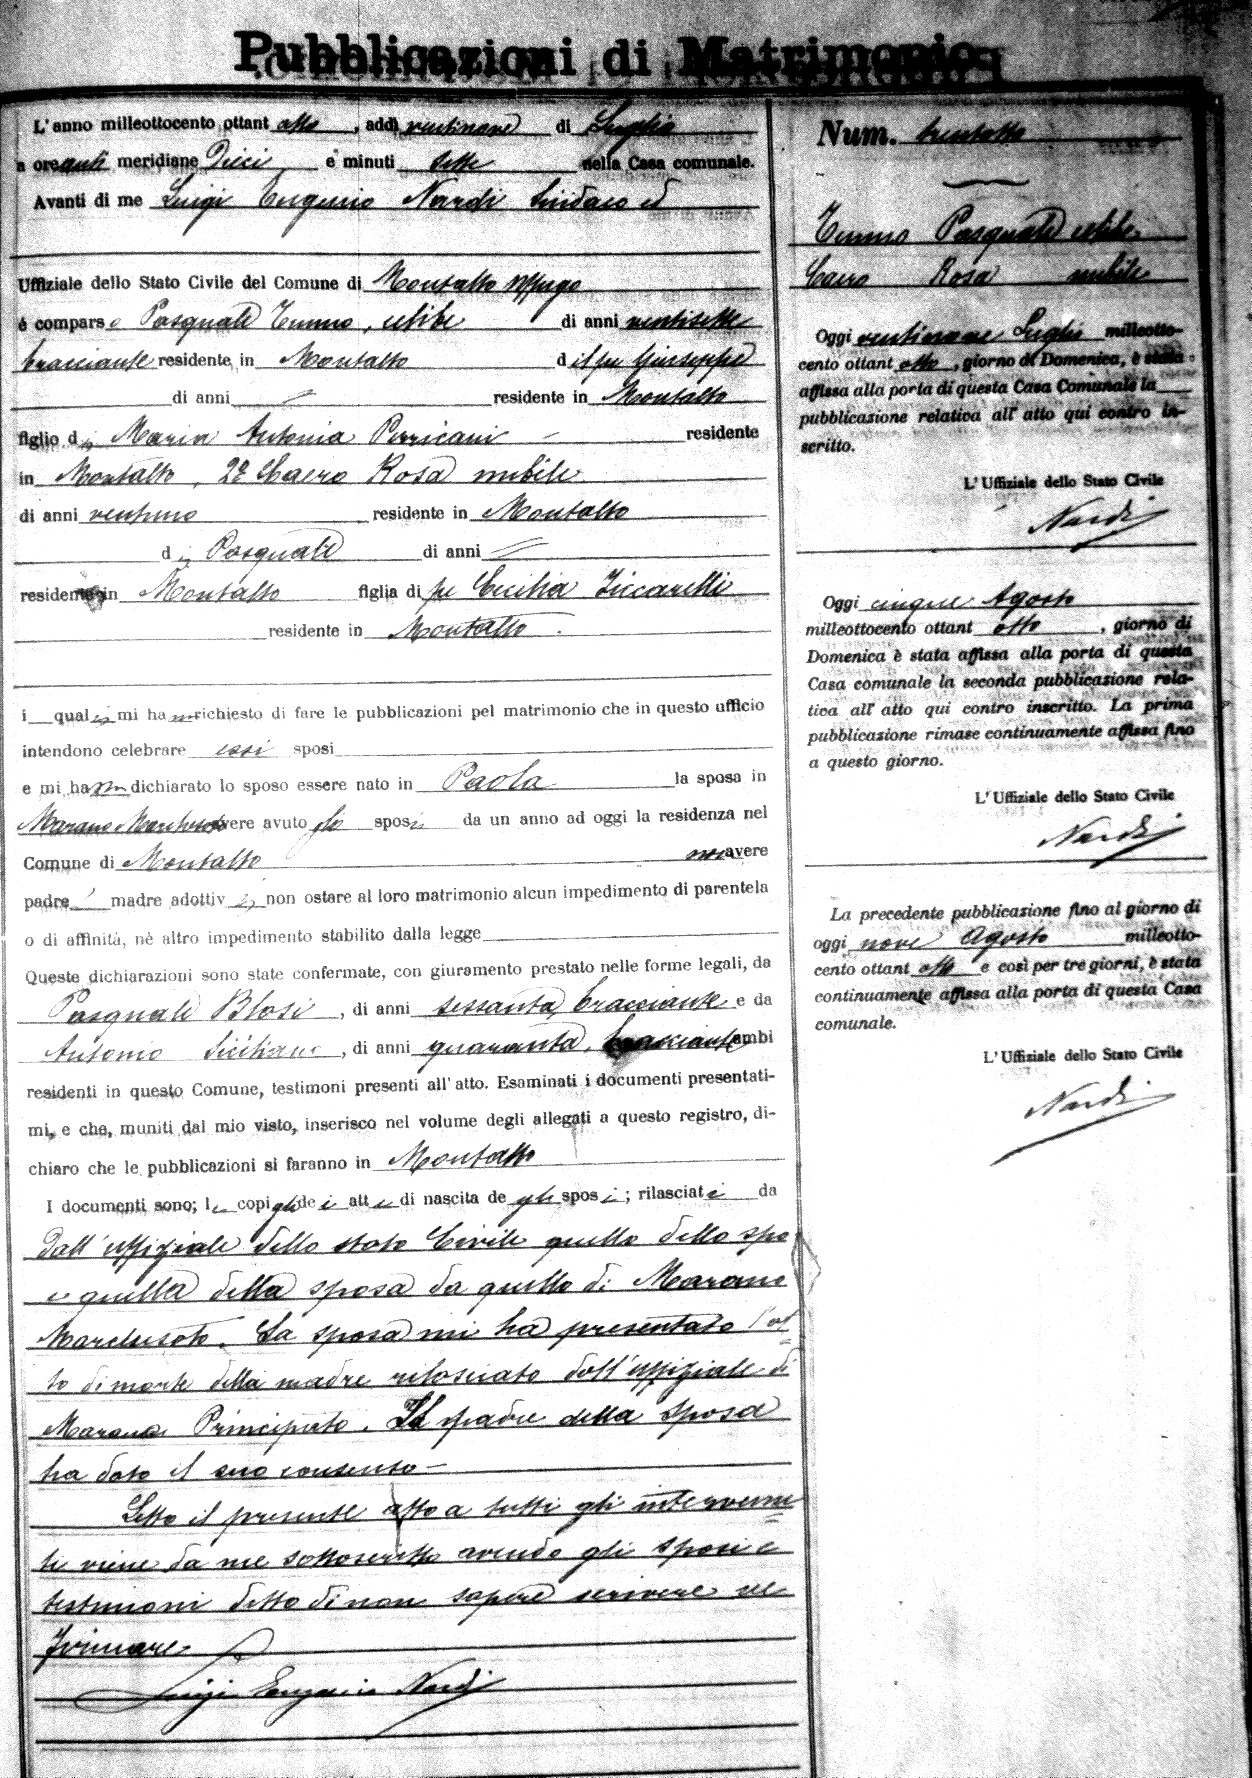 Pubblicazioni di Matrimonio
L'anno milleottocento ottant otto, addì ventinove di Luglio
a ore anti meridiane Dieci e minuti sette nella Casa comunale.
Avanti di me Luigi Eugenio Nardi Sindaco ed
Uffiziale dello Stato Civile del Comune di Montalto Uffugo
è comparso Pasquale Tenuo, celibe di anni ventisette
bracciante residente in Montalto d il fu Giuseppe
di anni residente in Montalto
figlio di Maria Antonia Perricani residente
in Montalto, 2º Caero Rosa nubile
di anni ventuno residente in Montalto
di Pasquale di anni
residente in Montalto figlia di fu Cecilia Ziccarelli
residente in Montalto.
i quali mi hanno richiesto di fare le pubblicazioni pel matrimonio che in questo ufficio
intendono celebrare essi sposi
e mi hanno dichiarato lo sposo essere nato in Paola la sposa in
Marano Marchesato avere avuto gli sposi da un anno ad oggi la residenza nel
Comune di Montalto non avere
padre madre adottivi, non ostare al loro matrimonio alcun impedimento di parentela
o di affinità, nè altro impedimento stabilito dalla legge
Queste dichiarazioni sono state confermate, con giuramento prestato nelle forme legali, da
Pasquale Blosi, di anni sessanta, bracciante e da
Antonio Siciliano, di anni quaranta, bracciante ambi
residenti in questo Comune, testimoni presenti all'atto. Esaminati i documenti presentati-
mi, e che, muniti dal mio visto, inserisco nel volume degli allegati a questo registro, di-
chiaro che le pubblicazioni si faranno in Montalto
I documenti sono; le copie de i atti di nascita de gli sposi; rilasciate da
dall'uffiziale dello stato Civile quello dello spo
e quella della sposa da quello di Marano
Marchesato. La sposa mi ha presentato l'at
to di morte della madre rilasciato dall'uffiziale di
Marano Principato. Il padre della sposa
ha dato il suo consenso
Letto il presente atto a tutti gli intervenu
ti viene da me sottoscritto avendo gli sposi e
testimoni detto di non sapere scrivere ne
firmare
Luigi Eugenio Nardi
Num. trentotto
Tenuo Pasquale celibe
Caero Rosa nubile
Oggi ventinove Luglio milleotto-
cento ottant otto, giorno di Domenica, è stata
affissa alla porta di questa Casa Comunale la
pubblicazione relativa all'atto qui contro in-
scritto.
L'Uffiziale dello Stato Civile
Nardi
Oggi cinque Agosto
milleottocento ottant otto, giorno di
Domenica è stata affissa alla porta di questa
Casa comunale la seconda pubblicazione rela-
tiva all'atto qui contro inscritto. La prima
pubblicazione rimase continuamente affissa fino
a questo giorno.
L'Uffiziale dello Stato Civile
Nardi
La precedente pubblicazione fino al giorno di
oggi nove Agosto milleotto-
cento ottant otto e così per tre giorni, è stata
continuamente affissa alla porta di questa Casa
comunale.
L'Uffiziale dello Stato Civile
Nardi